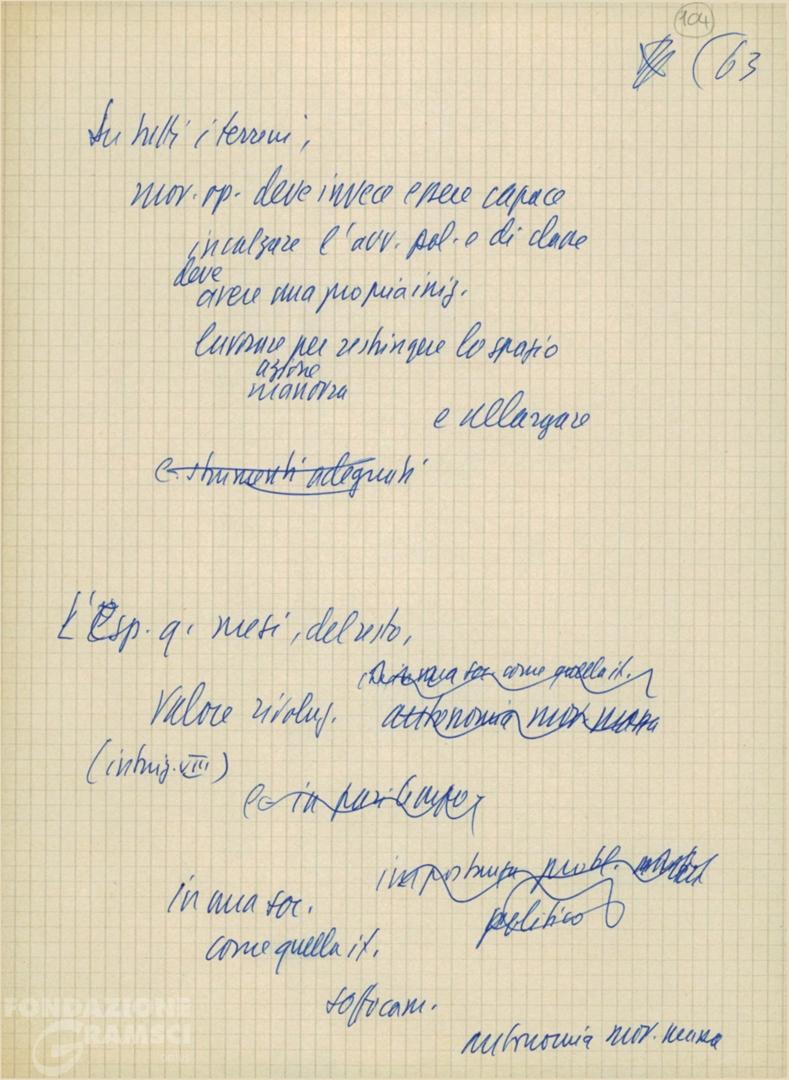 104
(63
Su tutti i terreni,
mov. op. deve invece essere capace
incalzare l'avv. pol. e di classe
deve
avere una propria iniz.
lavorare per restringere lo spazio
azione
manovra
e allargare
e strumenti adeguati
L'Esp. q. mesi, del resto,
in una soc. come quella it.
valore rivoluz. autonomia mov. massa
(intuiz. VIII)
e in pari tempo
importanza probl.
in una soc. politico
come quella it.
soffocam.
autonomia mov. massa
FONDAZIONE
GRAMSCI